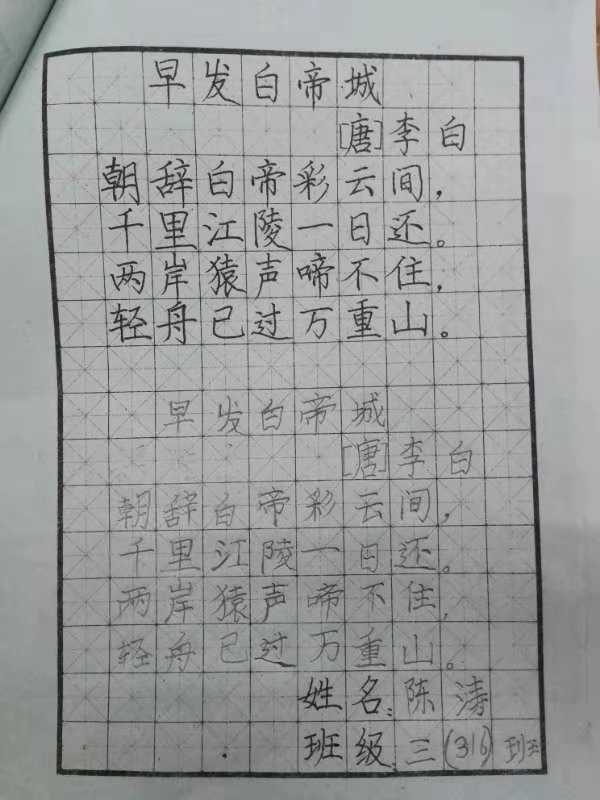 早发白帝城
[唐]李白
朝辞白帝彩云间，
千里江陵一日还。
两岸猿声啼不住，
轻舟已过万重山。
早发白帝城
[唐]李白
朝辞白帝彩云间，
千里江陵一日还。
两岸猿声啼不住，
轻舟已过万重山。
姓名：陈涛
班级：三（316）班